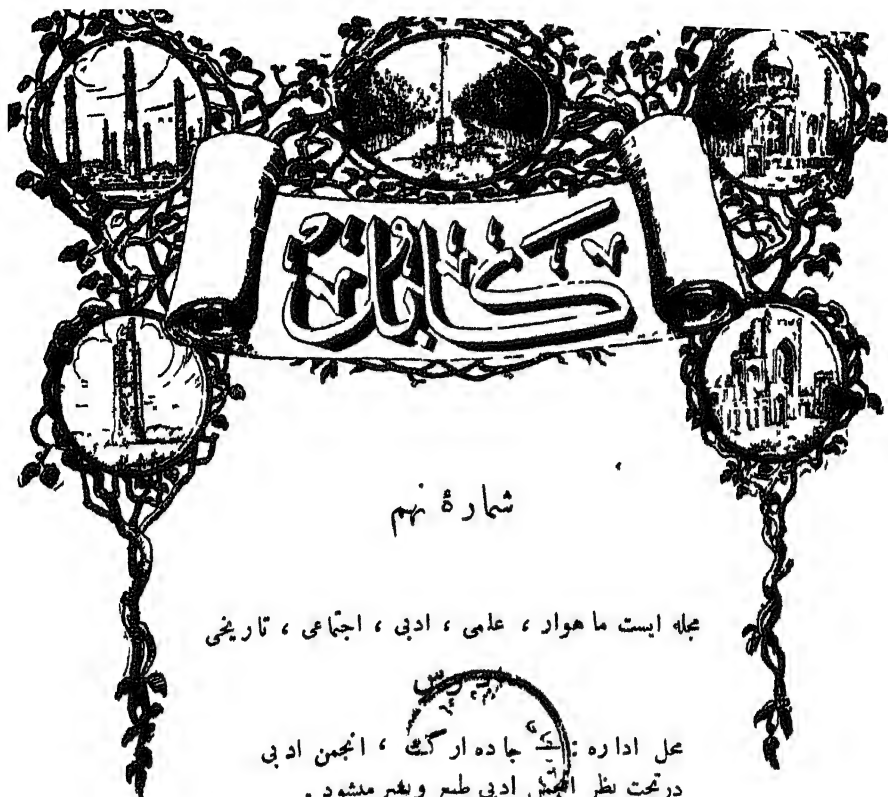 کابل
شمارهٔ نهم
مجله ایست ماهوار ، علمی ، ادبی ، اجتماعی ، تاریخی
محل اداره : جاده ارگ ، انجمن ادبی
در تحت نظر انجمن ادبی طبع و نشر میشود .